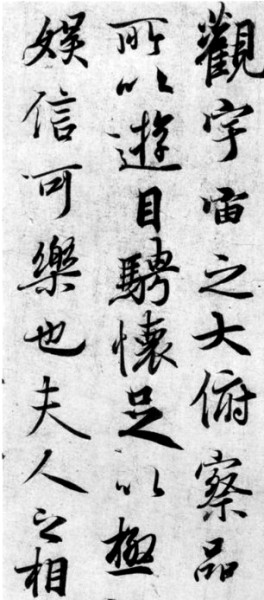 觀宇宙之大俯察品
所以遊目騁懷足以極
娛信可樂也夫人之相